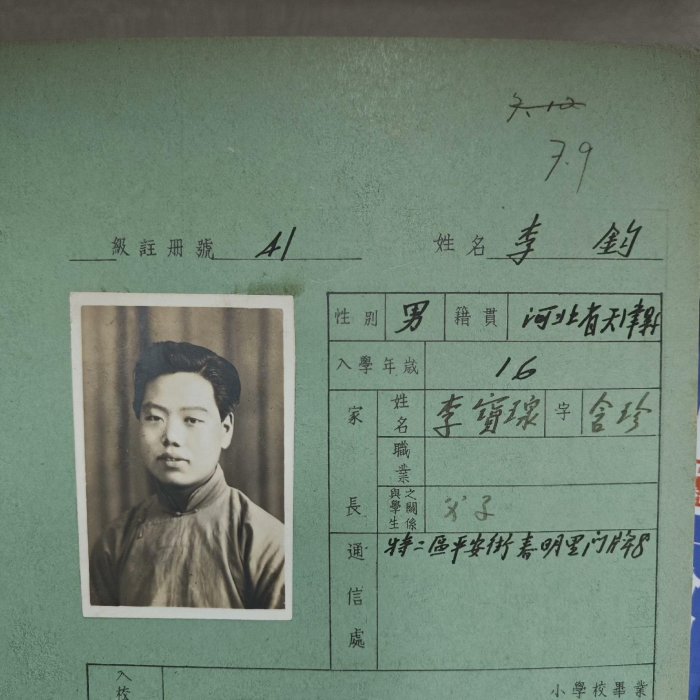 7.12
7.9
級註冊號 41 姓名 李鈞
性別 男 籍貫 河北省天津縣
入學年歲 16
家長 姓名 李寶琮 字 含珍
職業
與學生之關係 父子
通信處 特二區平安街春明里门牌8
入校
小學校畢業